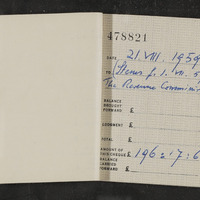 478821
DATE 21. VIII. 1959
TO
The Revenue Commissi
BALANCE
BROUGHT
FORWARD £
LODGMENT £
TOTAL £
AMOUNT OF
THIS CHEQUE £ 196:17:6
BALANCE
CARRIED
FORWARD £